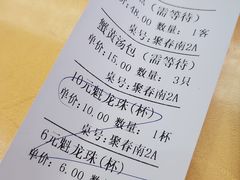 （需等待）
单价:48.00 数量: 1客
桌号:聚春南2A
蟹黄汤包（需等待）
单价:15.00 数量: 3只
桌号:聚春南2A
10元魁龙珠(杯)
单价:10.00 数量: 1杯
桌号:聚春南2A
6元魁龙珠(杯)
单价: 6.00 数量: